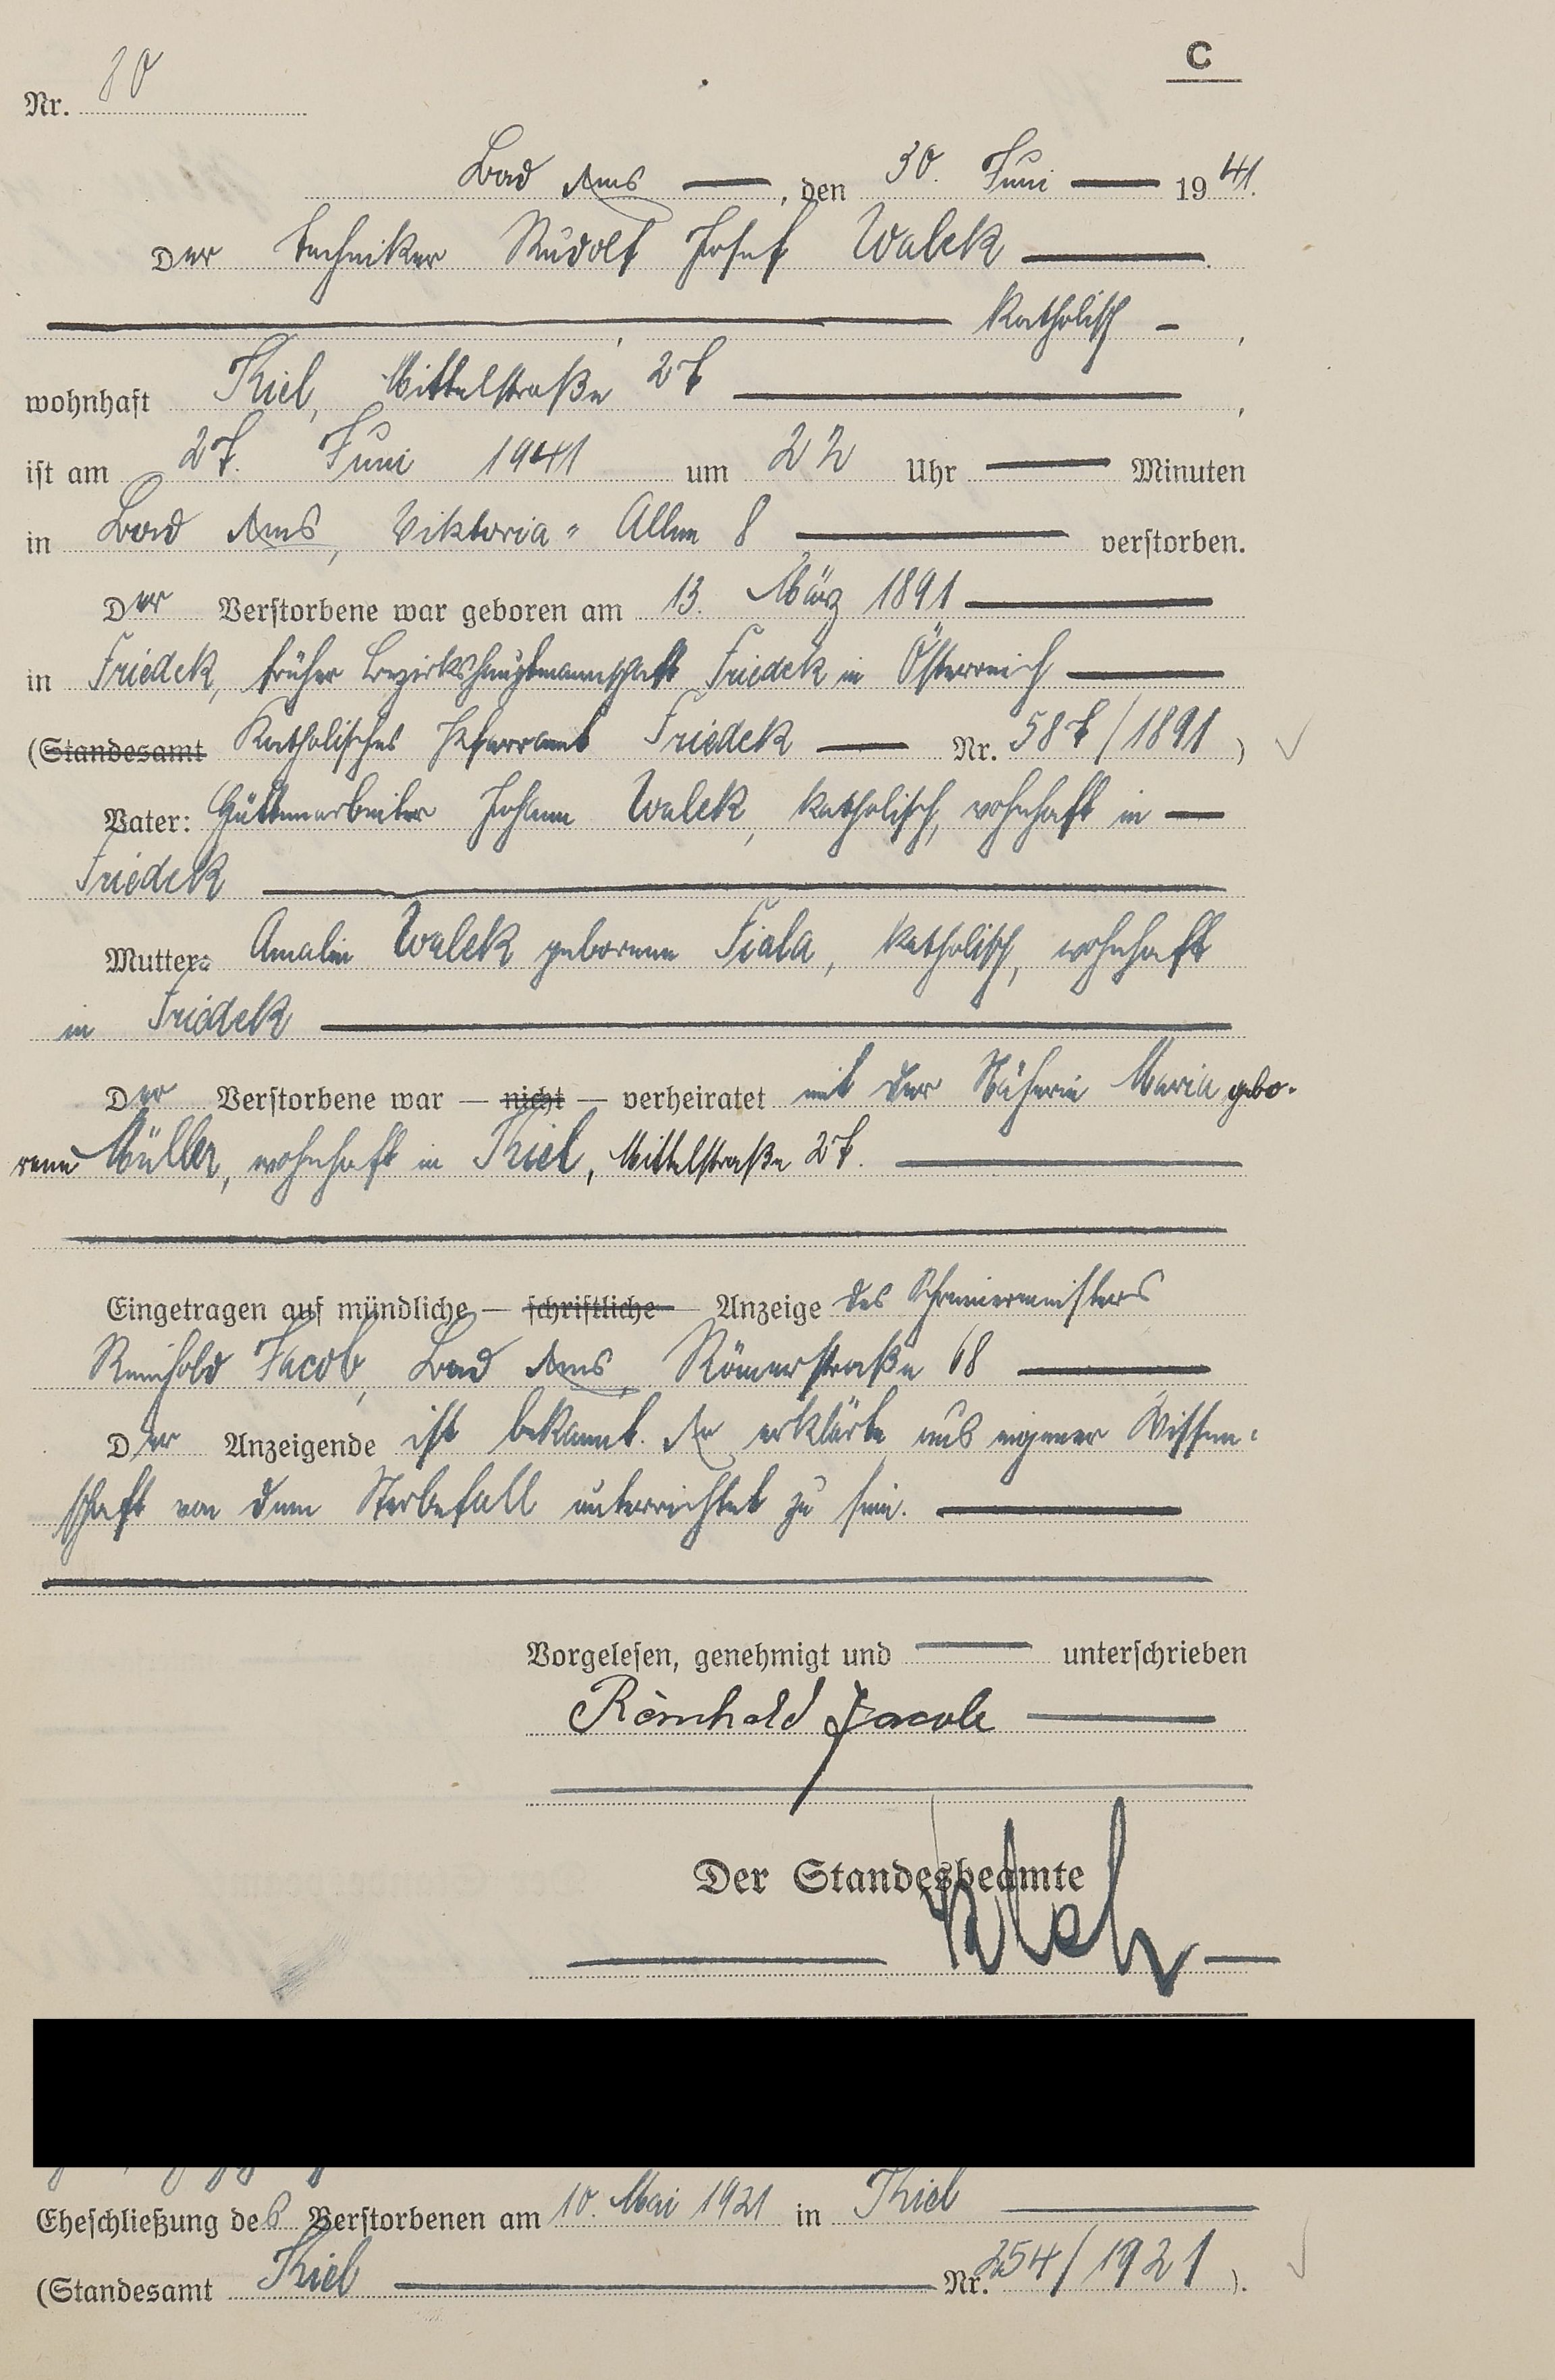 C
Nr. 80
Bad Ems, den 30. Juni 1941.
Der Techniker Rudolf Josef Walek
katholisch,
wohnhaft Kiel, Mittelstraße 27,
ist am 27. Juni 1941 um 22 Uhr Minuten
in Bad Ems, Viktoria-Allee 8 verstorben.
Der Verstorbene war geboren am 13. März 1891
in Friedek, früher Bezirkshauptmannschaft Friedek in Österreich
(Standesamt Katholisches Pfarramt Friedek Nr. 587/1891)
Vater: Hüttenarbeiter Johann Walek, katholisch, wohnhaft in
Friedek
Mutter: Amalie Walek geborene Fiala, katholisch, wohnhaft
in Friedek
Der Verstorbene war — nicht — verheiratet mit der Näherin Maria gebo-
rene Müller, wohnhaft in Kiel, Mittelstraße 27.
Eingetragen auf mündliche — schriftliche — Anzeige des Schreinermeisters
Reinhold Jacob, Bad Ems, Römerstraße 68
Der Anzeigende ist bekannt. Er erklärte, aus eigener Wissen-
schaft von dem Sterbefall unterrichtet zu sein.
Vorgelesen, genehmigt und unterschrieben
Reinhold Jacob
Der Standesbeamte
Eheschließung des Verstorbenen am 10. Mai 1921 in Kiel
(Standesamt Kiel Nr. 254/1921).